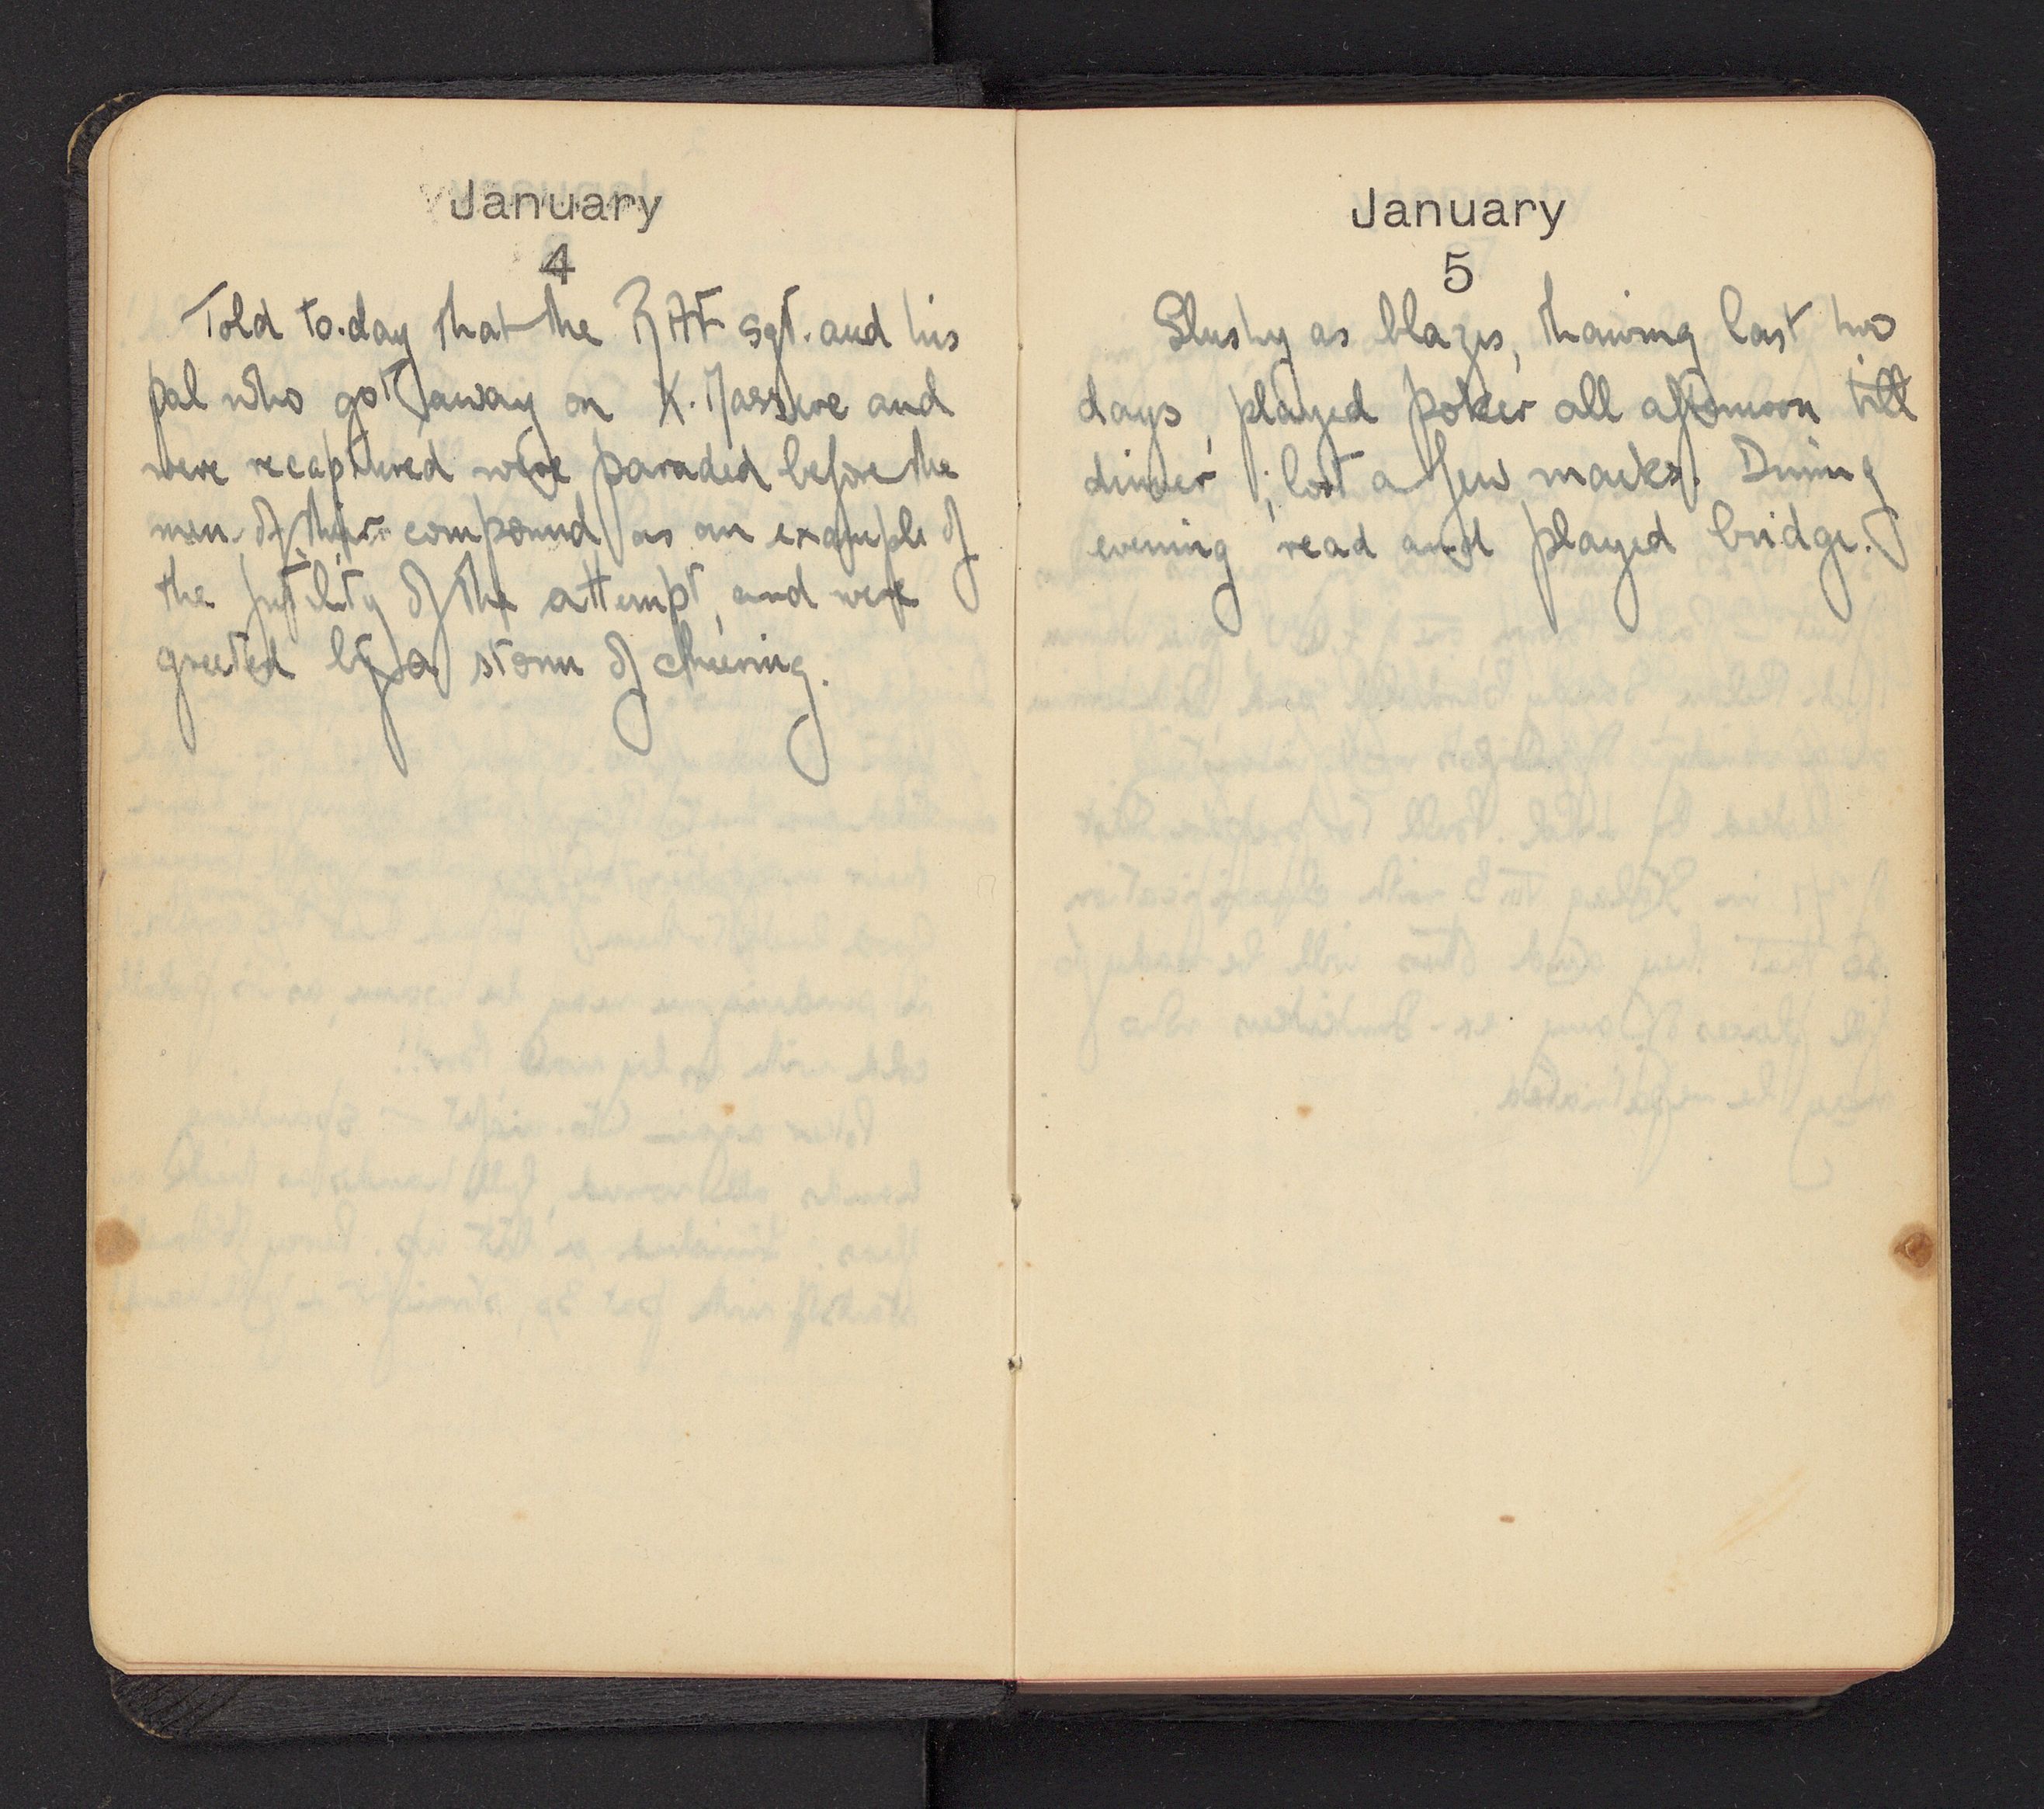 January
4
Told to-day that the RAF sgt. and his
pal who got away on X. Masseve and
were recaptured were paraded before the
men of their compound as an example of
the futility of the attempt, and were
greeted by a storm of cheering.
January
5
Slushy as blazes, thawing last two
days, played poker all afternoon till
dinner; lost a few marks. During
evening read and played bridge.